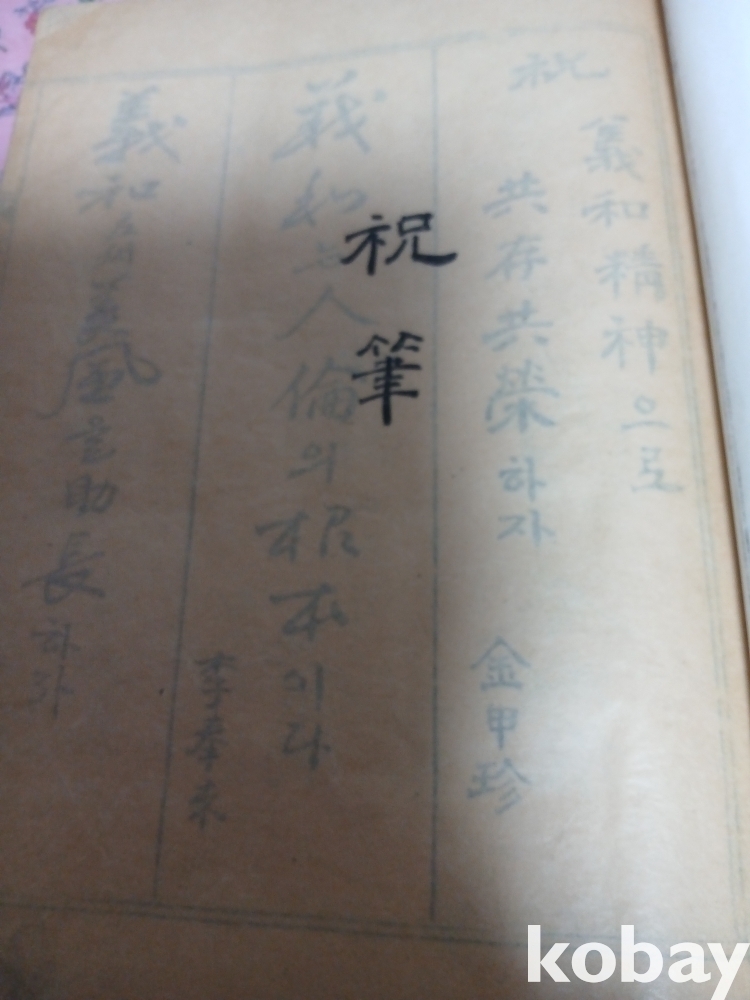 祝筆
祝
義和精神으로
共存共榮하자
金甲珍
義和는人倫의根本이다
李奉
義和 美風을助長하자
kobay